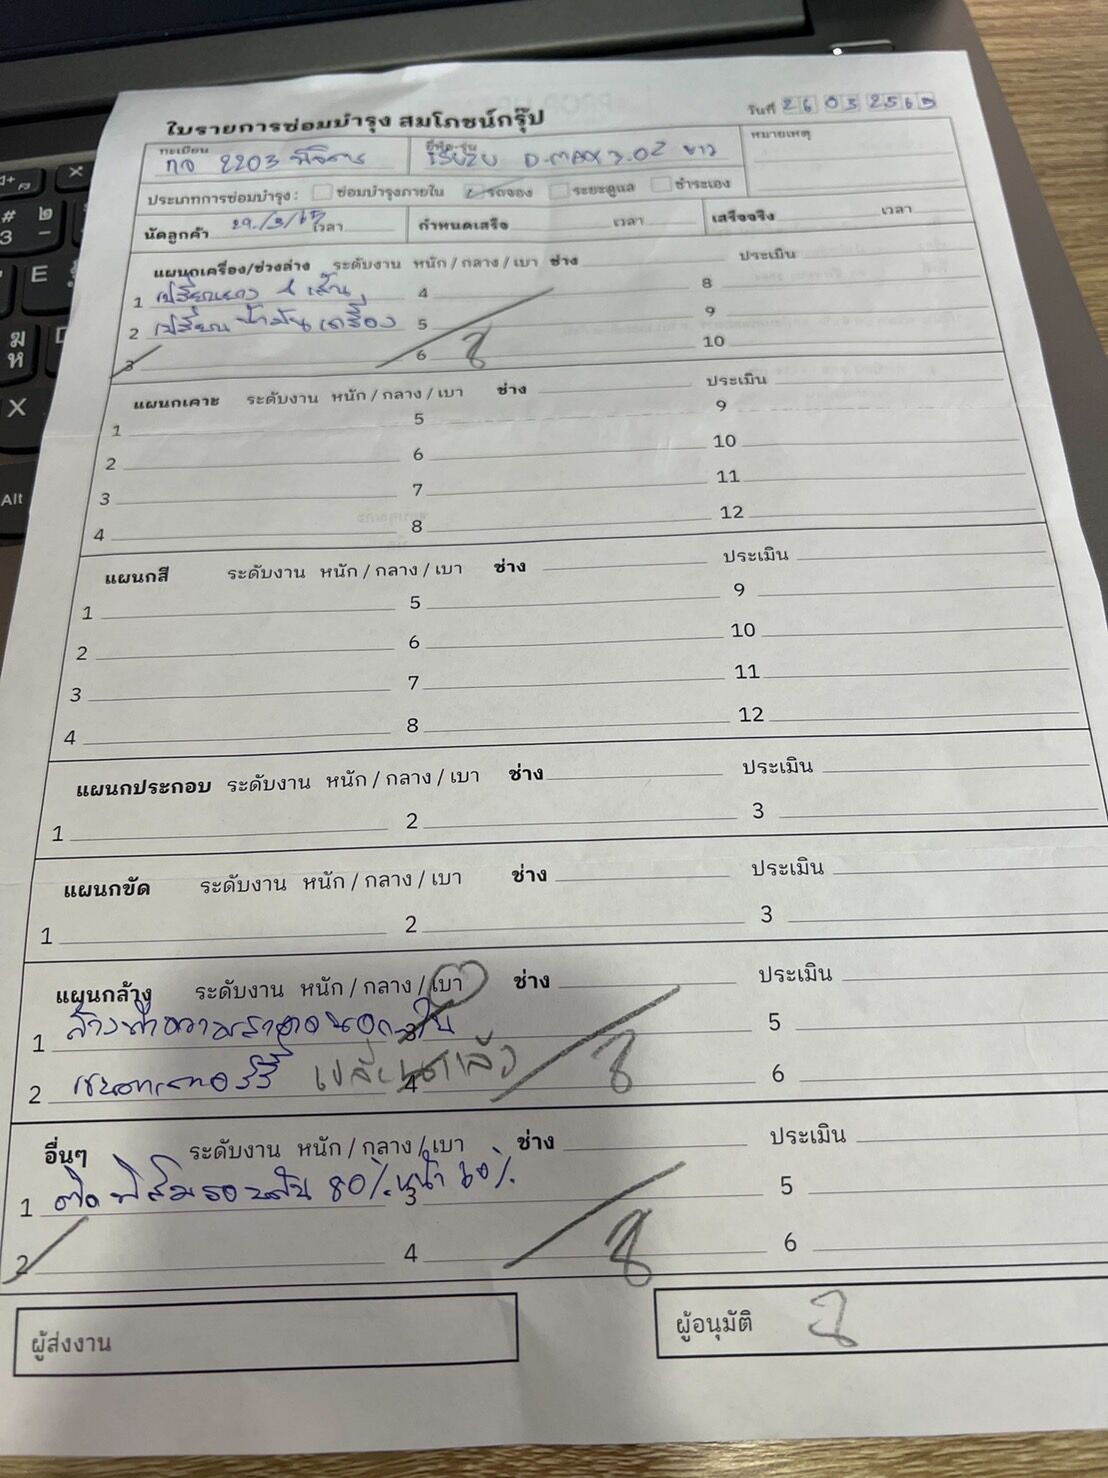 ใบรายการซ่อมบำรุง สมโภชน์กรุ๊ป
วันที่ 26 03 25
ทะเบียน
2203
ยี่ห้อ-รุ่น
ISUZU D-MAX
หมายเหตุ
ประเภทการซ่อมบำรุง : ซ่อมบำรุงภายใน รถจอง ระยะดูแล ชำระเอง
นัดลูกค้า 29/3/ เวลา กำหนดเสร็จ เวลา เสร็จจริง เวลา
แผนกเครื่อง/ช่วงล่าง ระดับงาน หนัก / กลาง / เบา ช่าง ประเมิน
1 เปลี่ยนยาง 4 เส้น 4 8
2 เปลี่ยนน้ำมันเครื่อง 5 9
3 6 10
แผนกเคาะ ระดับงาน หนัก / กลาง / เบา ช่าง ประเมิน
1 5 9
2 6 10
3 7 11
4 8 12
แผนกสี ระดับงาน หนัก / กลาง / เบา ช่าง ประเมิน
1 5 9
2 6 10
3 7 11
4 8 12
แผนกประกอบ ระดับงาน หนัก / กลาง / เบา ช่าง ประเมิน
1 2 3
แผนกขัด ระดับงาน หนัก / กลาง / เบา ช่าง ประเมิน
1 2 3
แผนกล้าง ระดับงาน หนัก / กลาง / เบา ช่าง ประเมิน
1 ล้างทำความสะอาดนอก-ใน 3 5
2 เปลี่ยนแล้ว 4 6
อื่นๆ ระดับงาน หนัก / กลาง / เบา ช่าง ประเมิน
1 ติดฟิล์มรอบคัน 80% หน้า 60% 3 5
2 4 6
ผู้ส่งงาน
ผู้อนุมัติ